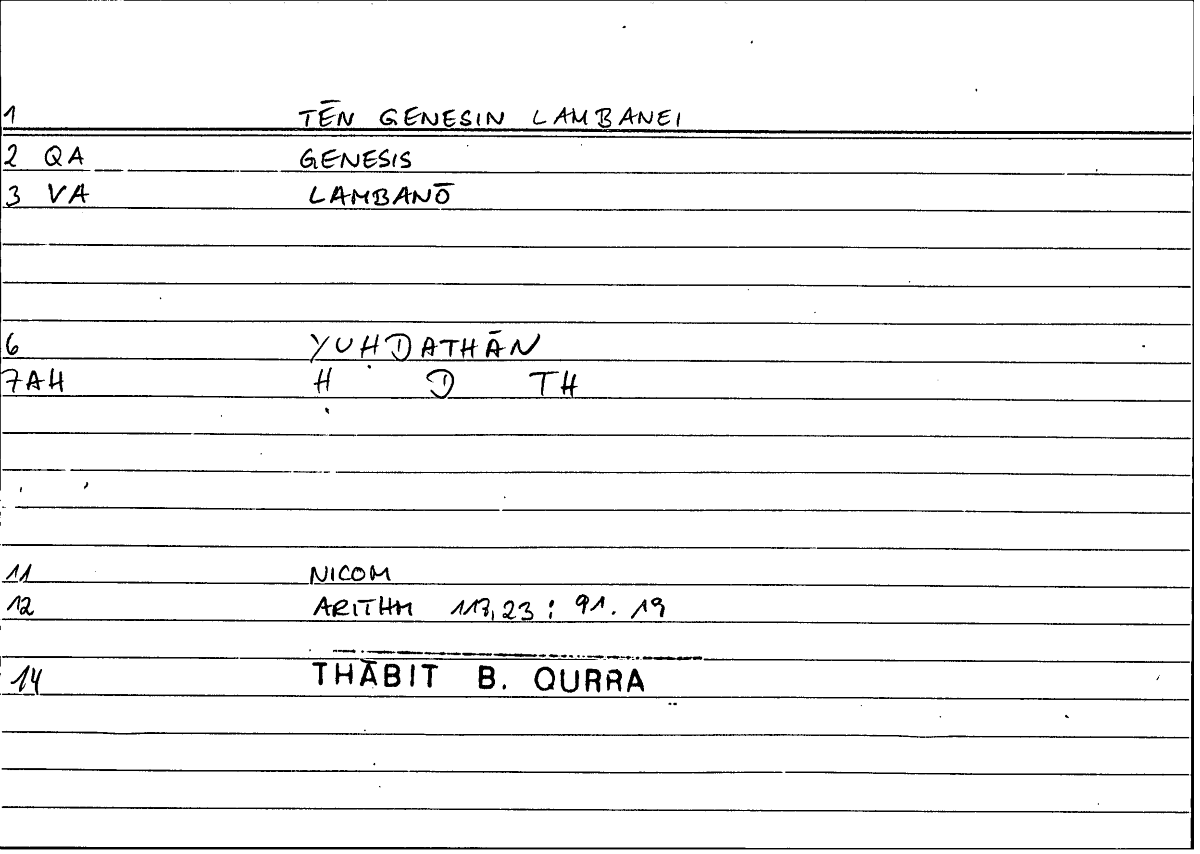 1 TĒN GENESIN LAMBANEI
2 QA GENESIS
3 VA LAMBANŌ
6 YUḤDATHĀN
7AH Ḥ D TH
11 NICOM
12 ARITHM 113,23 : 91. 19
14 THĀBIT B. QURRA